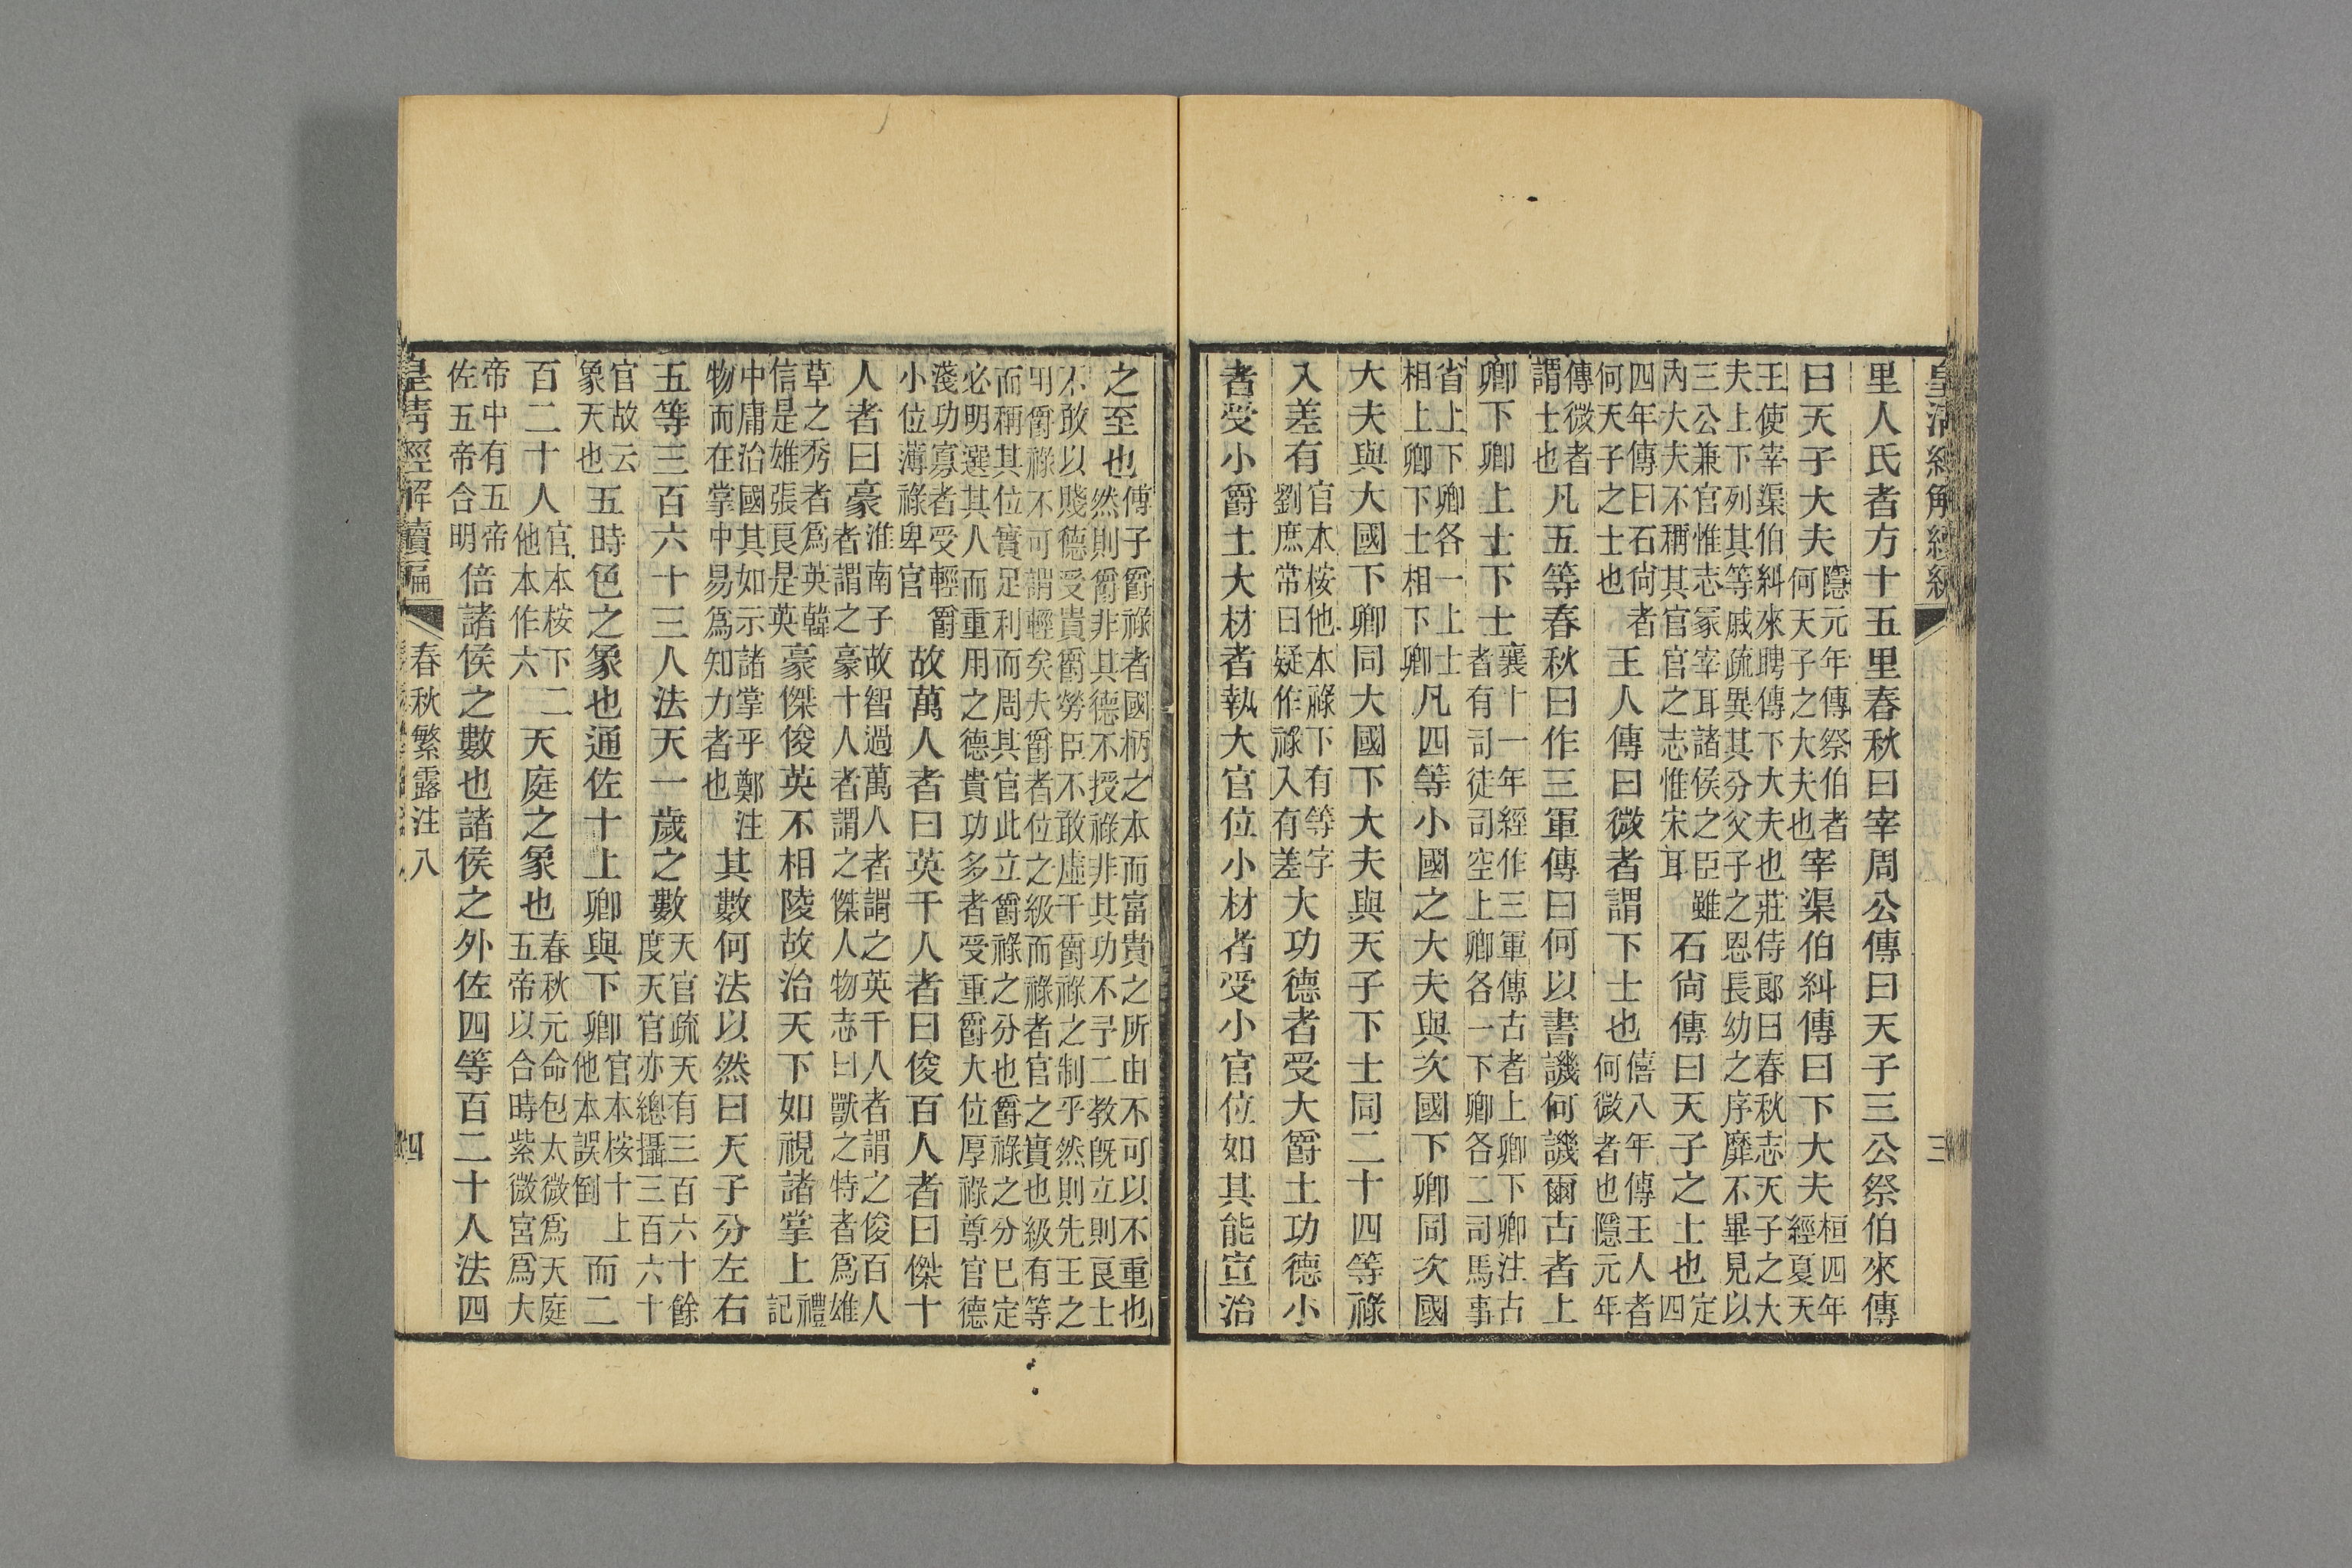 里人氏者方十五里春秋曰宰周公傳曰天子三公祭伯來傳
曰天子大夫隱元年傳祭伯者何天子之大夫也宰渠伯糾傳曰下大夫桓四年經夏天
王使宰渠伯糾來聘傳下大夫也莊侍郎曰春秋志天子之大夫上下列其等戚疏異其分父子之恩長幼之序靡不畢見以
三公兼官惟志冢宰耳諸侯之臣雖內大夫不稱其官官之志惟宋耳石尙傳曰天子之士也定四
四年傳曰石尙者何天子之士也王人傳曰微者謂下士也僖八年傳王人者何微者也隱元年
傳微者謂士也凡五等春秋曰作三軍傳曰何以書譏何譏爾古者上
卿下卿上士下士襄十一年經作三軍傳古者上卿下卿注古者有司徒司空上卿各一下卿各二司馬事
省上下卿各一上士相上卿下士相下卿凡四等小國之大夫與次國下卿同次國
大夫與大國下卿同大國下大夫與天子下士同二十四等祿
入差有官本桉他本祿下有等字劉庶常曰疑作祿入有差大功德者受大爵土功德小
者受小爵土大材者執大官位小材者受小官位如其能宣治
之至也傅子爵祿者國柄之本而富貴之所由不可以不重也然則爵非其德不授祿非其功不予二教旣立則良士
不敢以賤德受貴爵勞臣不敢虛干爵祿之制乎然則先王之明爵祿不可謂輕矣夫爵者位之級而祿者官之實也級有等
而稱其位實足利而周其官此立爵祿之分也爵祿之分已定必明選其人而重用之德貴功多者受重爵大位厚祿尊官德
淺功寡者受輕爵小位薄祿卑官故萬人者曰英千人者曰俊百人者曰傑十
人者曰豪淮南子故智過萬人者謂之英千人者謂之俊百人者謂之豪十人者謂之傑人物志曰獸之特者爲雄
草之秀者爲英韓信是雄張良是英豪傑俊英不相陵故治天下如視諸掌上禮記
中庸治國其如示諸掌乎鄭注物而在掌中易爲知力者也其數何法以然曰天子分左右
五等三百六十三人法天一歲之數天官疏天有三百六十餘度天官亦總攝三百六十
官故云象天也五時色之象也通佐十上卿與下卿官本桉十上他本誤倒而二
百二十人官本桉下二他本作六天庭之象也春秋元命包太微爲天庭五帝以合時紫微宮爲大
帝中有五帝佐五帝合明倍諸侯之數也諸侯之外佐四等百二十人法四
皇淸經解續編 春秋繁露注八 四